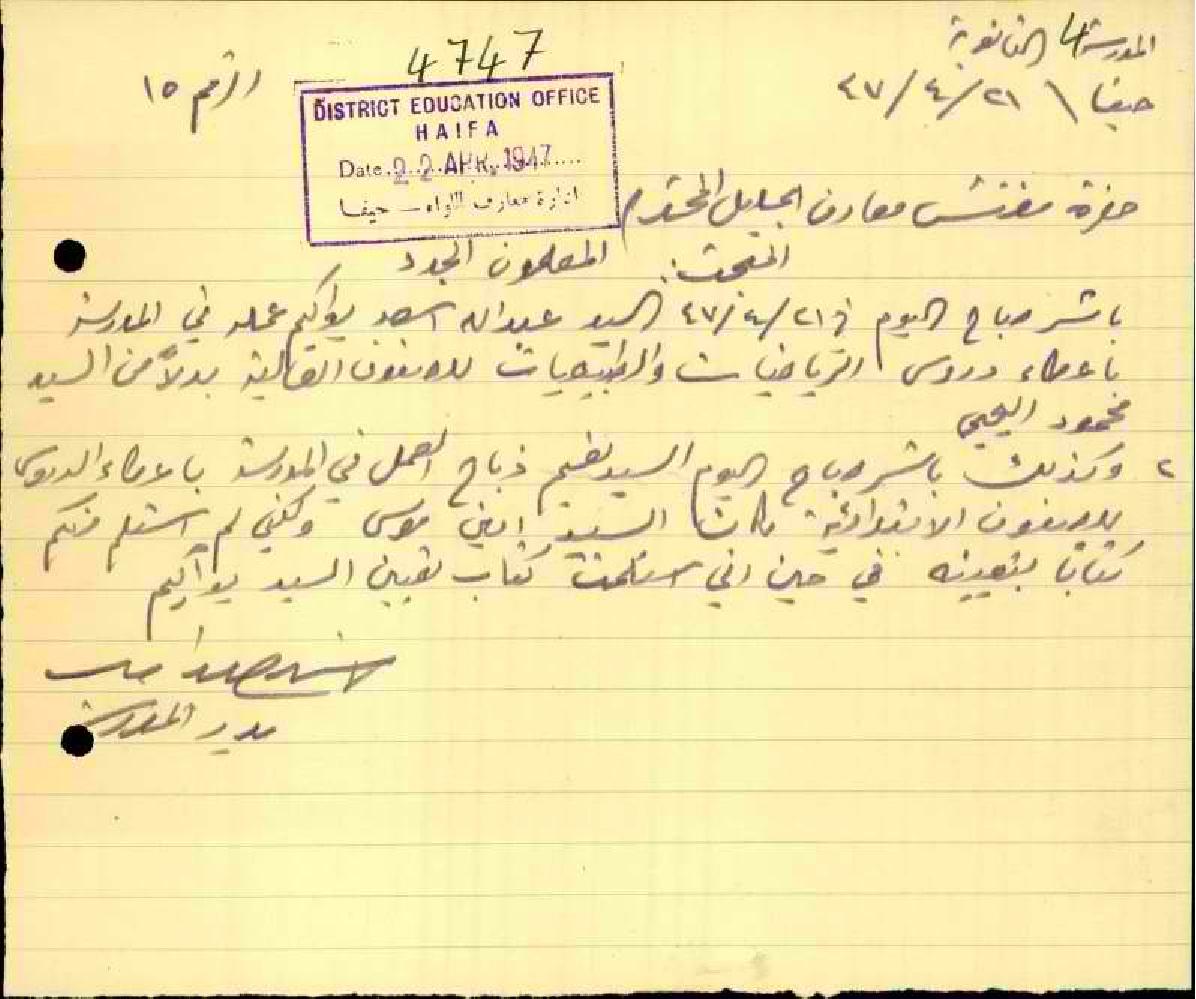 المدرسة الثانوية
4747
الرقم ١٥
حيفا \ ٢١/٤/٤٧
DISTRICT EDUCATION OFFICE
HAIFA
Date 22 APR. 1947
ادارة معارف اللواء - حيفا
حضرة مفتش معارف الجليل المحترم
المبحث: المعلمون الجدد
باشر صباح اليوم في ٢١/٤/٤٧ السيد عبدالله اسعد يواكيم عمله في المدرسة
باعطاء دروس الرياضيات والطبيعيات للصفوف العالية بدلاً من السيد
محمود اليحيى
٢ وكذلك باشر صباح اليوم السيد نعيم ذباح العمل في المدرسة باعطاء الدروس
للصفوف الابتدائية مكان السيد موسى ولكني لم استلم منكم
كتاباً بتعيينه في حين اني استلمت كتاب تعيين السيد يواكيم
مدير المدرسة